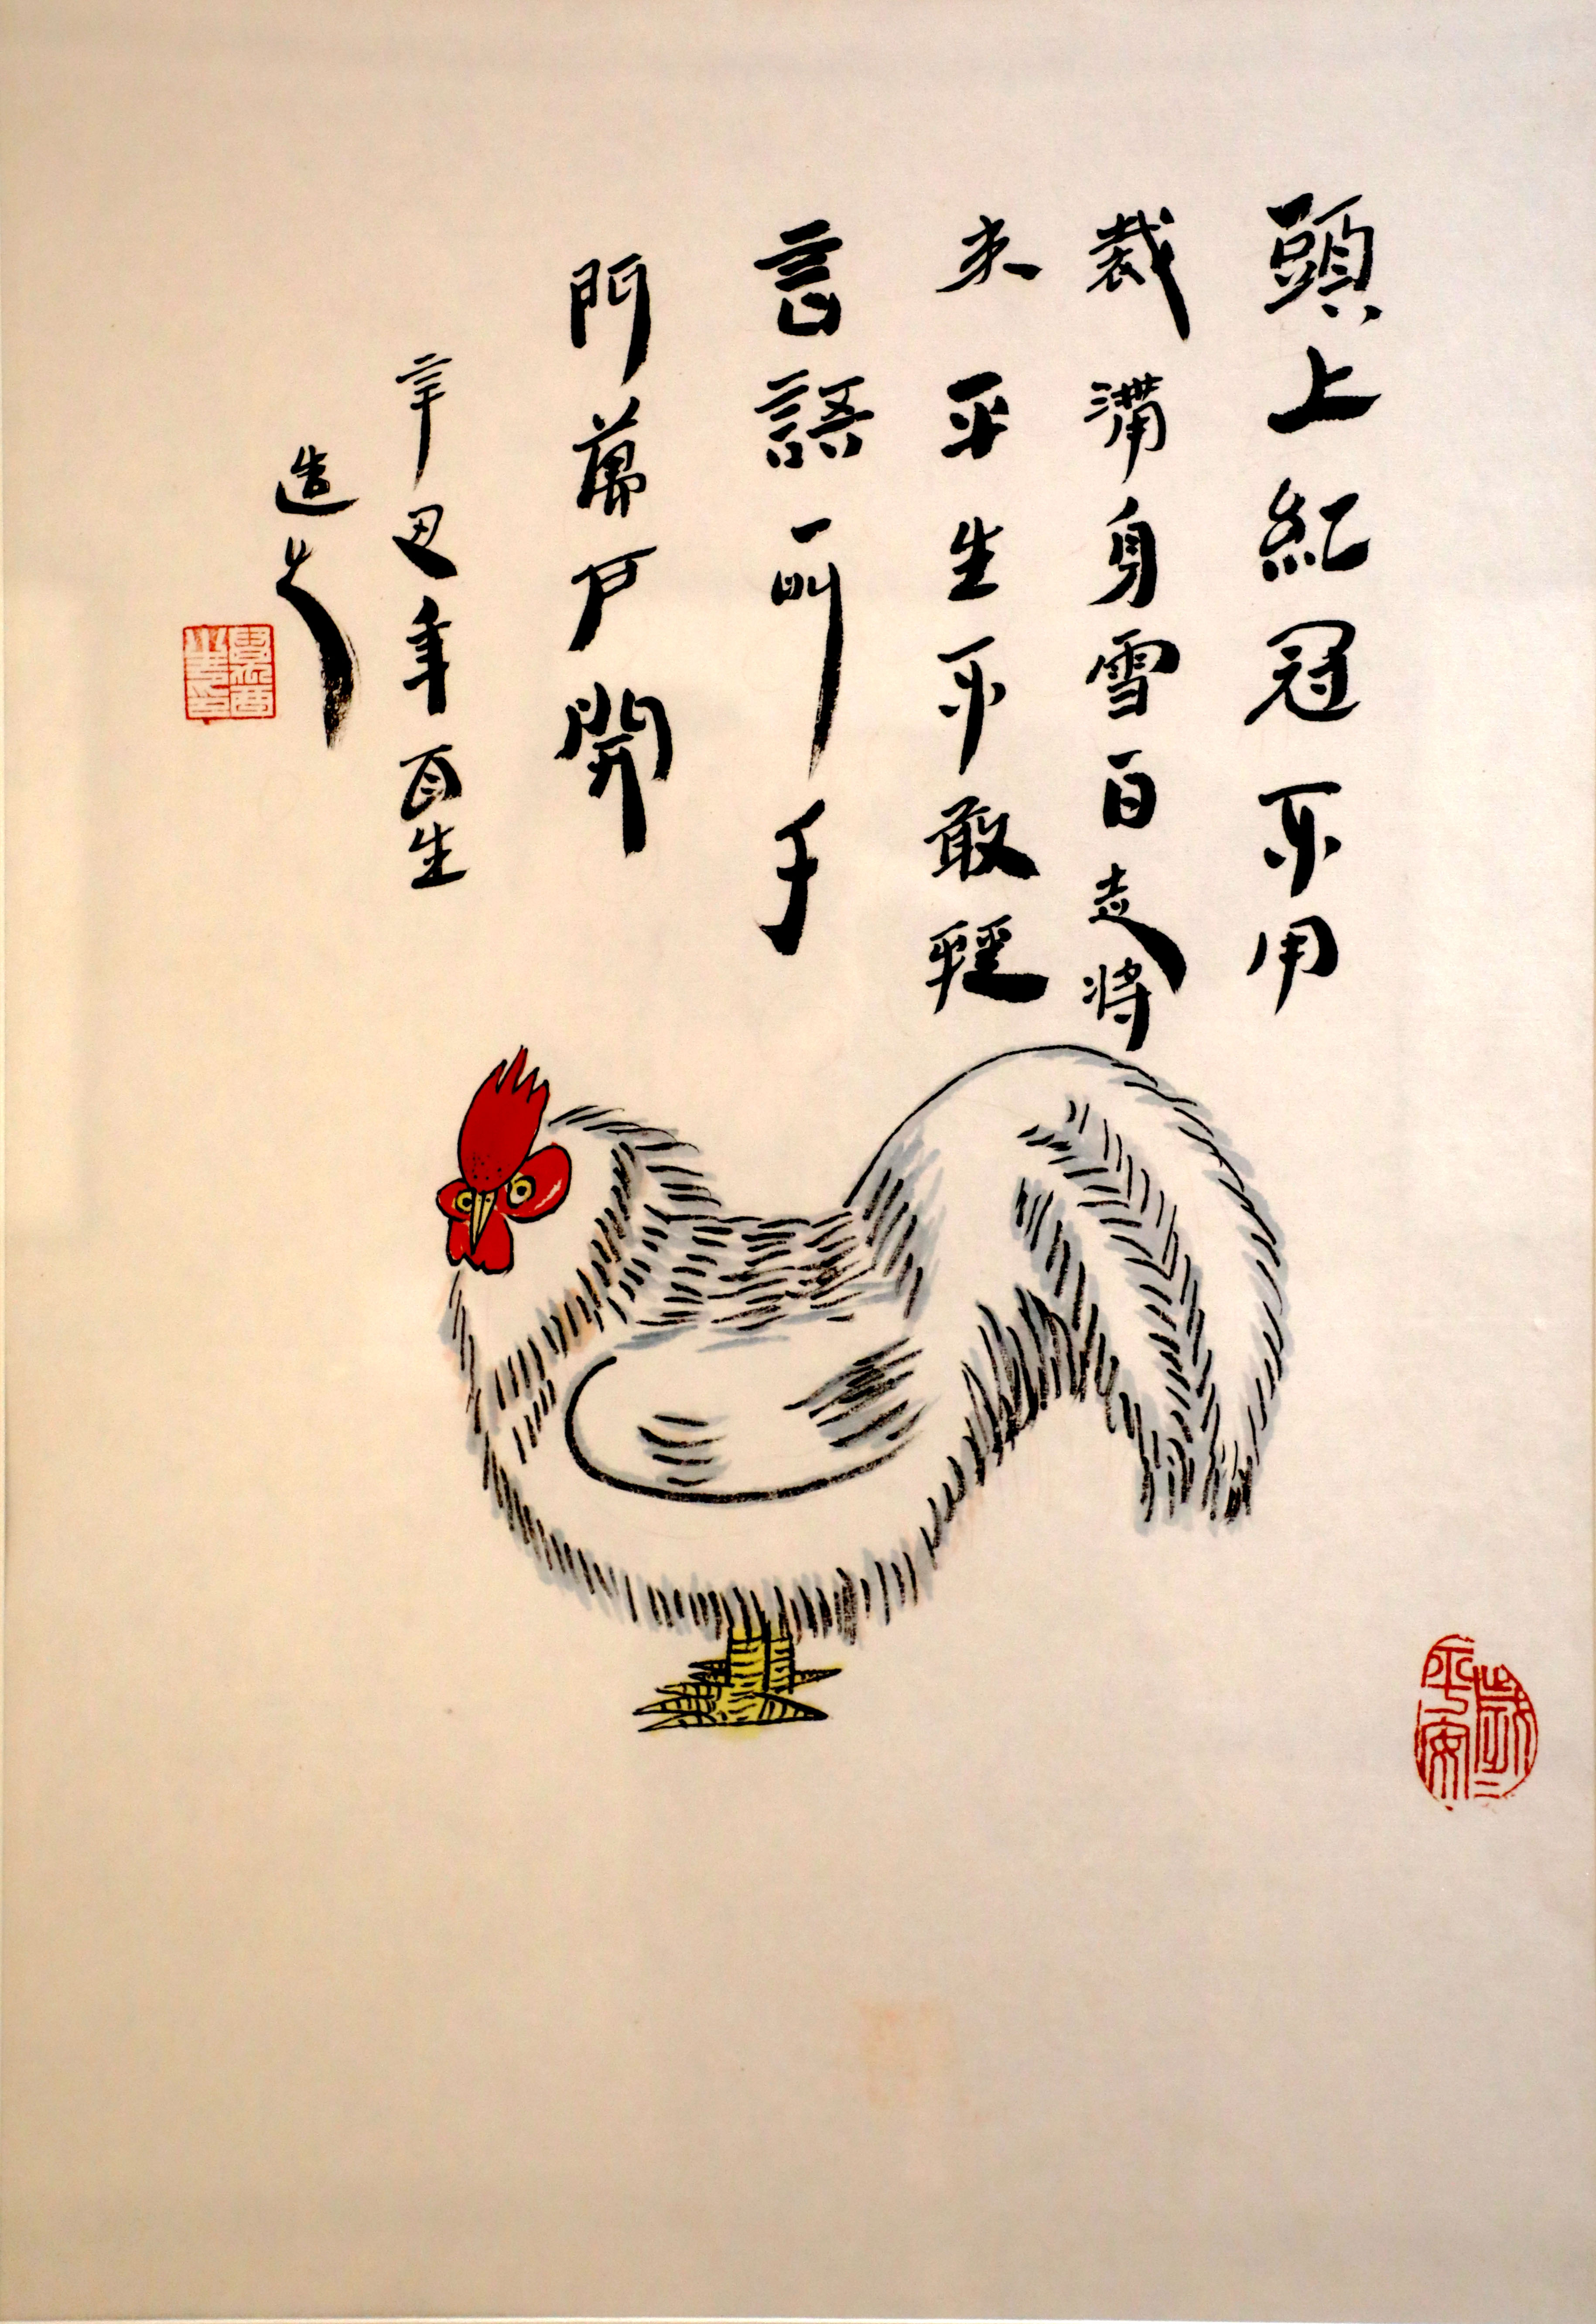 頭上紅冠不用
裁滿身雪白走將
来平生不敢輕
言語一叫千
門萬戶開
辛丑年百生
造
歲二平安